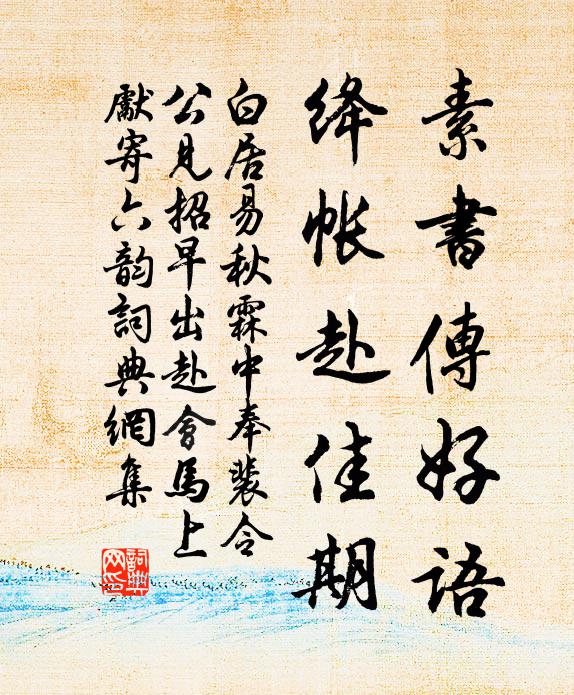 素書傳好語
絳帳赴佳期
白居易秋霖中奉裴令
公見招早出赴會馬上
獻寄六韵詞典網集